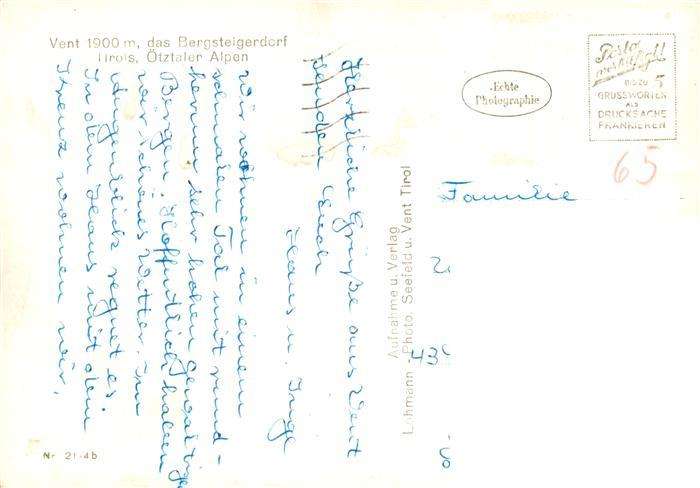 Vent 1900 m, das Bergsteigerdorf
Tirols, Ötztaler Alpen
Herzliche Grüße aus Vent
senden Euch
Hans u. Inge
Wir wohnen in einem
schmalen Tal mit rund-
herum sehr hohen gewaltigen
Bergen. Hoffentlich haben
wir schönes Wetter. Im
Augenblick regnet es
In dem Haus mit dem
Kreuz wohnen wir.
Nr. 21-4b
Aufnahme u. Verlag
Lohmann - Photo, Seefeld u. Vent Tirol
Echte
Photographie
Posto
BIS ZU 5
GRUSSWORTEN
ALS
DRUCKSACHE
FRANKIEREN
65
Familie
43